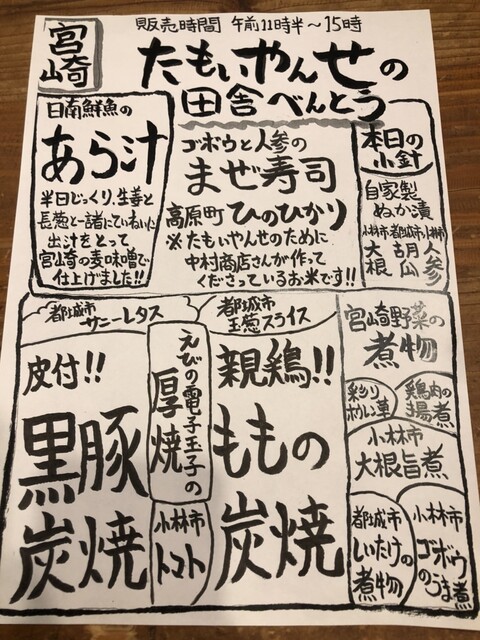 宮崎
販売時間 午前11時半～15時
たもいやんせの
田舎べんとう
日南鮮魚の
あら汁
半日じっくり、生姜と
長葱と一諸にていねいに
出汁をとって
宮崎の麦味噌で
仕上げました!!
ゴボウと人参の
まぜ寿司
高原町 ひのひかり
※たもいやんせのために
中村商店さんが作って
くださっているお米です!!
本日の
小針
自家製
ぬか漬
小林市 都城市 小林市
大根 胡瓜 人参
都城市
サニーレタス
皮付!!
黒豚
炭焼
えびの電子玉子の
厚焼
小林市
トマト
都城市
玉葱スライス
親鶏!!
ももの
炭焼
宮崎野菜の
煮物
彩り
ホウレン草
鶏肉の
揚煮
小林市
大根旨煮
都城市
しいたけの
煮物
小林市
ゴボウ
のうま煮